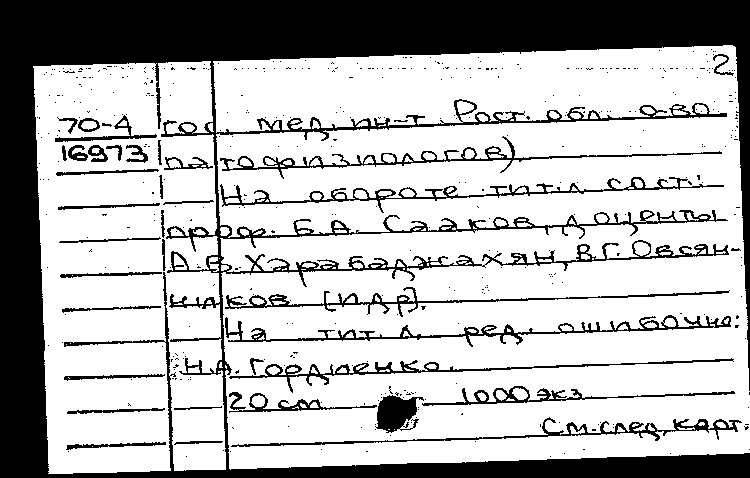 2
70-4 гос. мед. ин-т. Рост. обл. о-во
16973 патофизиологов).
На обороте тит. л. сост.:
проф. Б.А. Сааков, доценты
А.В. Харабаджахян, В.Г. Овсян-
ников [и др].
На тит. л. ред. ошибочно:
Н.А. Гордиенко.
20 см 1000 экз
См. след. карт.